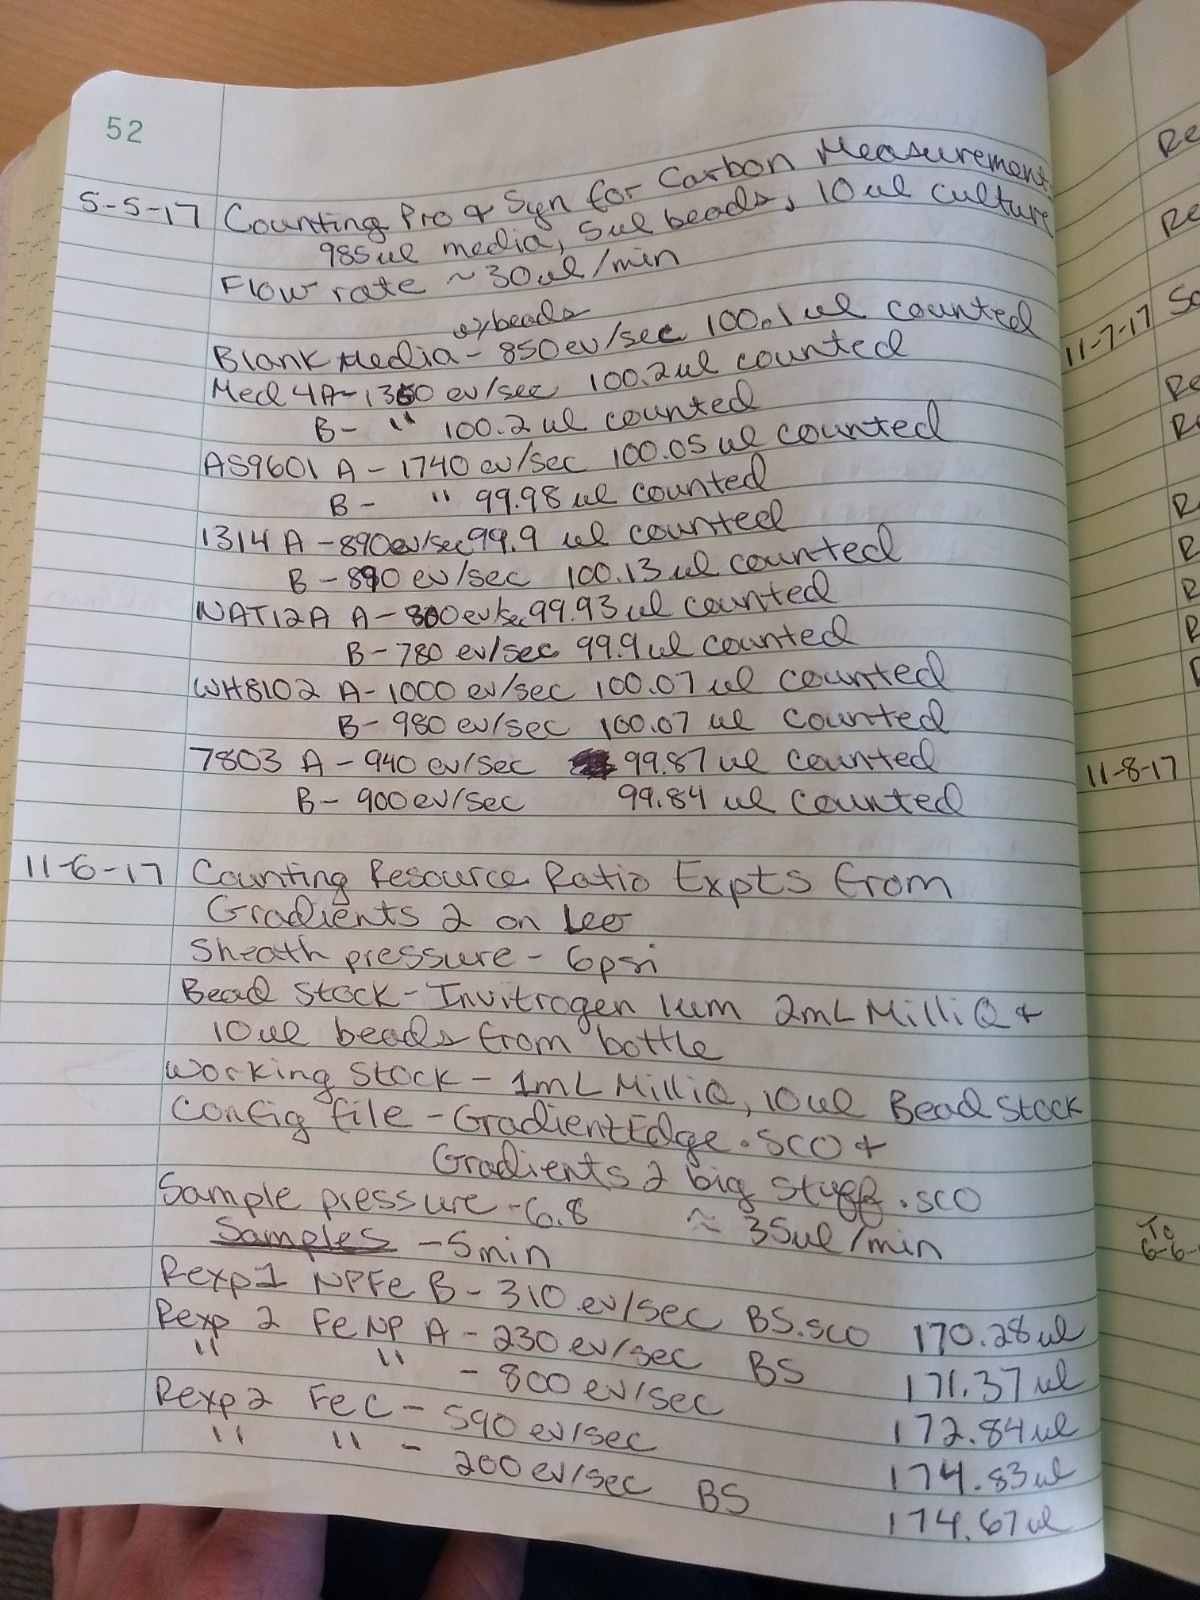 52
5-5-17 Counting Pro & Syn for Carbon Measurement
985ul media, 5ul beads, 10ul culture
Flow rate ~30ul/min
w/beads
Blank Media - 850ev/sec 100.1ul counted
Med4A - 1360 ev/sec 100.2ul counted
B - " 100.2ul counted
AS9601 A - 1740 ev/sec 100.05 ul counted
B - " 99.98 ul counted
1314 A - 890ev/sec 99.9 ul counted
B - 890 ev/sec 100.13 ul counted
NAT12A A - 800ev/sec 99.93 ul counted
B - 780 ev/sec 99.9ul counted
WH8102 A - 1000 ev/sec 100.07 ul counted
B - 980 ev/sec 100.07 ul counted
7803 A - 940 ev/sec 99.87 ul counted
B - 900ev/sec 99.84 ul counted
11-6-17 Counting Resource Ratio Expts from
Gradients 2 on Leo
Sheath pressure - 6psi
Bead Stock - Invitrogen 1um 2mL MilliQ +
10ul beads from bottle
Working Stock - 1mL MilliQ, 10ul Bead Stock
Config file - GradientEdge.sco +
Gradients 2 big stuff.sco
Sample pressure - 6.8 ≈ 35ul/min
Samples - 5min
Rexp1 NPFe B - 310 ev/sec BS.sco 170.28ul
Rexp 2 FeNP A - 230 ev/sec BS 171.37ul
" " - 800 ev/sec 172.84ul
Rexp2 Fe C - 590 ev/sec 174.83ul
" " - 200 ev/sec BS 174.67ul
Re
Re
11-7-17 Sa
Re
R
R
R
R
R
11-8-17
To
6-6-